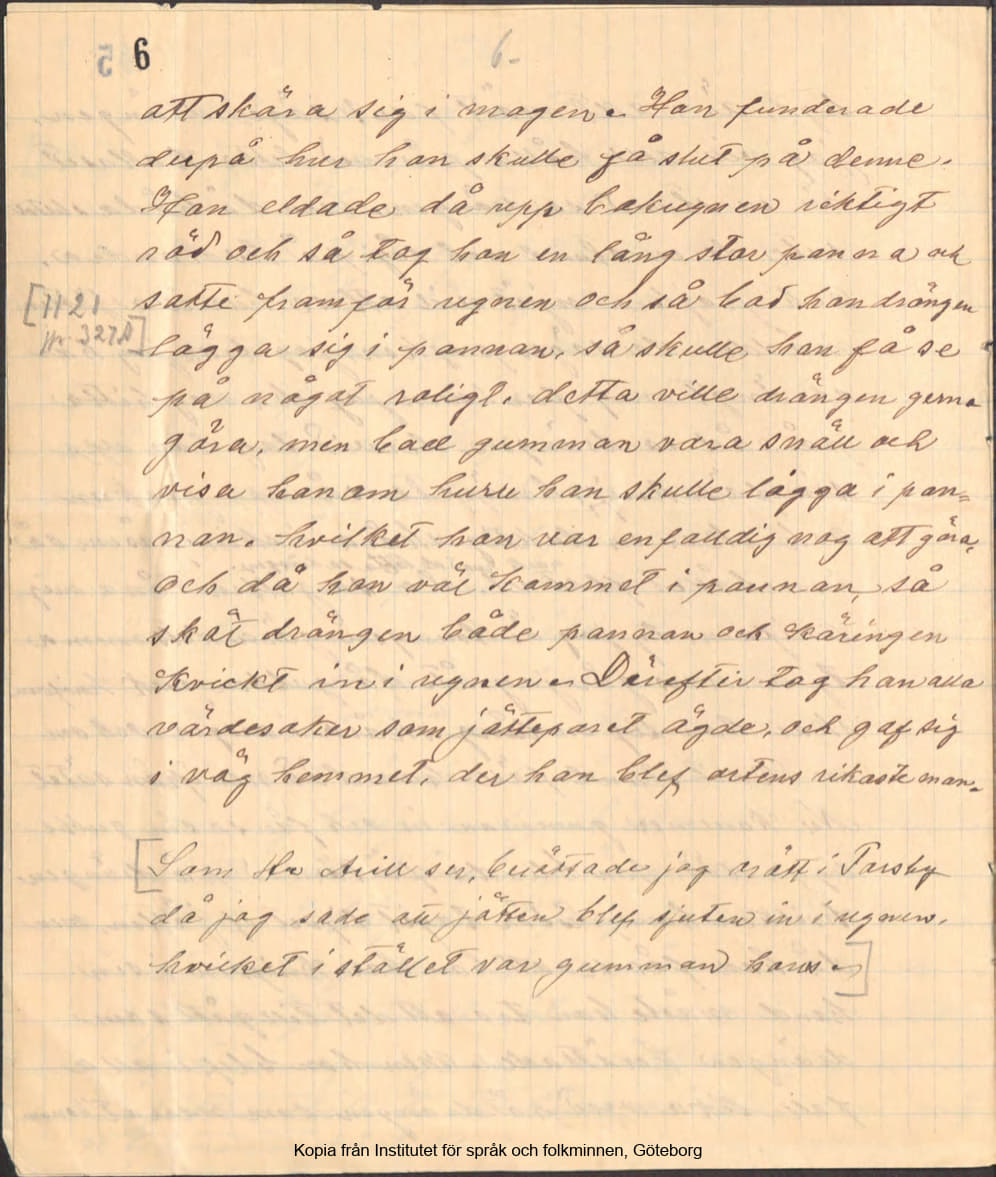 6
6-
att skära sig i magen. Hon funderade
derpå hur hon skulle få slut på denne.
Hon eldade då upp bakugnen riktigt
röd och så tog hon en lång stor panna och
satte framför ugnen och så bad hon drängen
[1121
nr 327A]
lägga sig i pannan, så skulle han få se
på något roligt, detta ville drängen gerna
göra, men bad gumman vara snäll och
visa honom huru han skulle lägga i pan=
nan. hvilket hon var enfaldig nog att göra,
och då hon väl kommet i pannan, så
sköt drängen både pannan och käringen
kvickt in i ugnen. Derefter tog han alla
värdesaker som jätteparet ägde, och gaf sig
i väg hemmet, der han blef ortens rikaste man.
[Som Hr ser, berättade jag rätt i Torsby
då jag sade att jätten blef sjuten in i ugnen,
hvilket i stället var gumman hans.]
Kopia från Institutet för språk och folkminnen, Göteborg